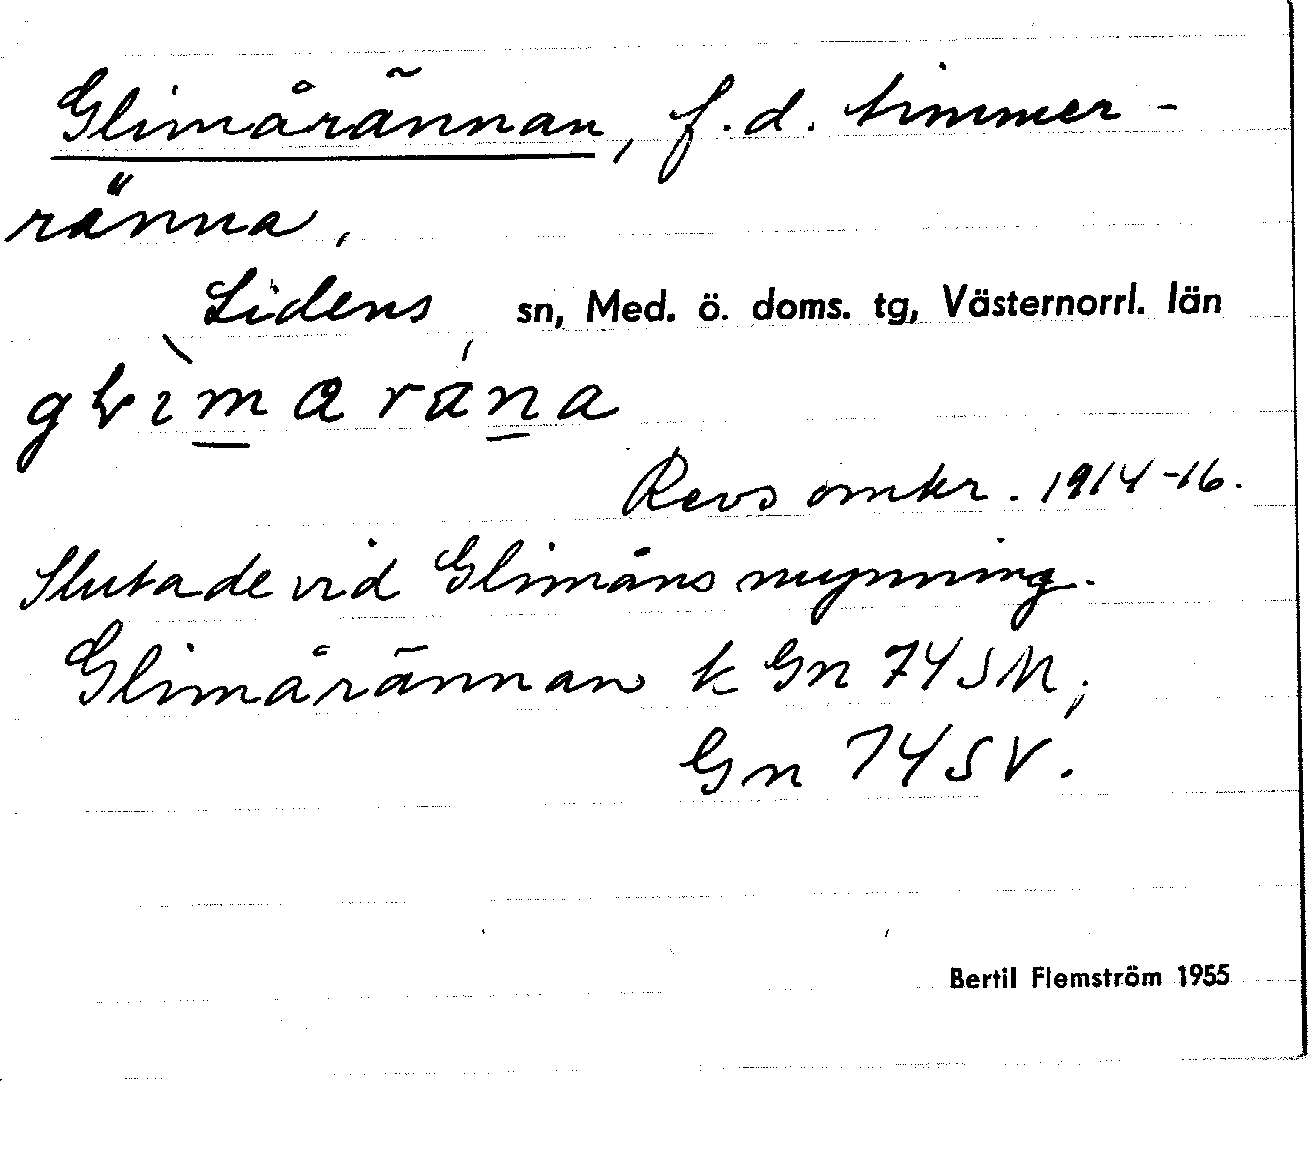 Glimårännan, f.d. timmer-
ränna,
Lidens sn, Med. ö. doms. tg, Västernorrl. län
Revs omkr. 1914-16.
Slutade vid Glimåns mynning.
Glimårännan k Gn 74 SM;
Gn 74 SV.
Bertil Flemström 1955